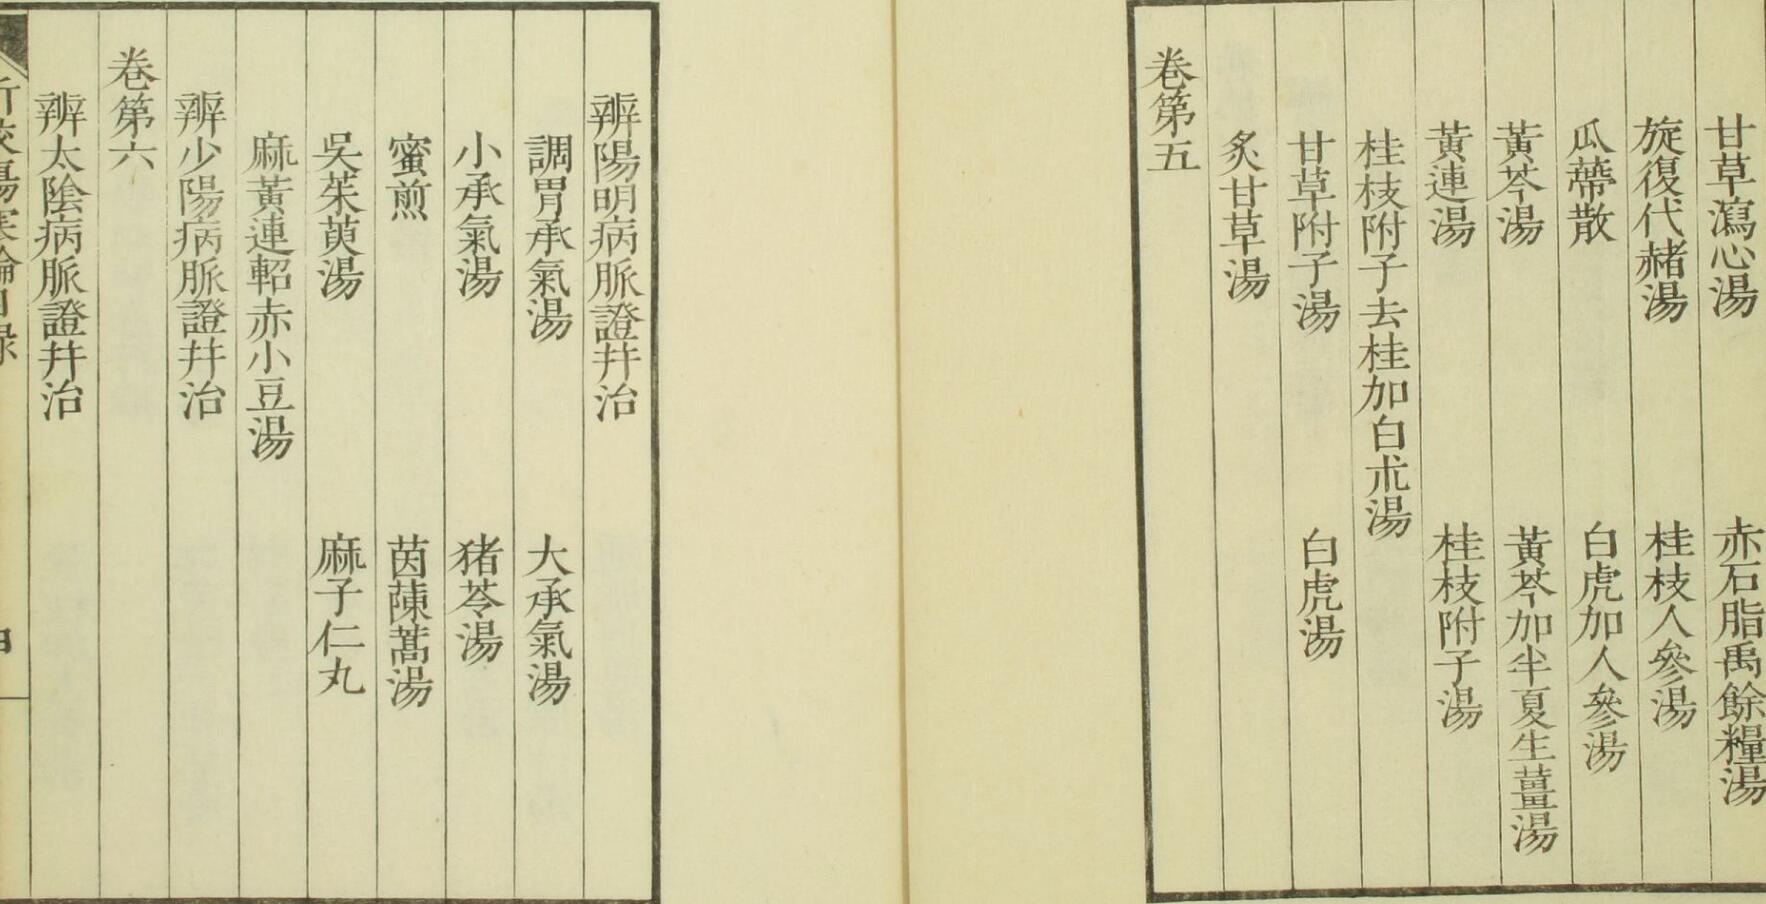 甘草瀉心湯 赤石脂禹餘糧湯
旋復代赭湯 桂枝人參湯
瓜蔕散 白虎加人參湯
黃芩湯 黃芩加半夏生薑湯
黃連湯 桂枝附子湯
桂枝附子去桂加白朮湯
甘草附子湯 白虎湯
炙甘草湯
卷第五
辨陽明病脈證幷治
調胃承氣湯 大承氣湯
小承氣湯 猪苓湯
蜜煎 茵蔯蒿湯
吳茱萸湯 麻子仁丸
麻黃連軺赤小豆湯
辨少陽病脈證幷治
卷第六
辨太陰病脈證幷治